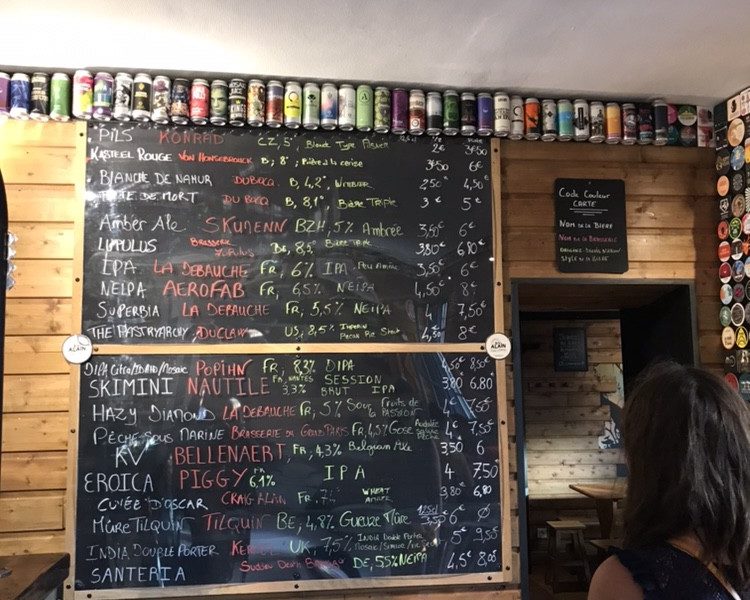 PILS KONRAD CZ, 5° Blonde Type Pilsner 2€ 3€50
KASTEEL ROUGE VAN HONSEBROUCK B, 8°, Bière à la cerise 3€50 6€
BLANCHE DE NAMUR DUBOCQ B, 4,2°, WITBIER 2,50€ 4,50€
DE MORT DU BOCQ B, 8,1°, Bière TRIPLE 3€ 5€
Amber Ale SKUMENN BZH, 5% Ambrée 3,50€ 6€
LUPULUS BRASSERIE LUPULUS BE, 8,5° Bière TRIPLE 3,80€ 6,80€
IPA LA DEBAUCHE FR, 6% IPA PEU AMÈRE 3,50€ 6€
NEIPA AEROFAB FR, 6,5% NEIPA 4,50€ 8€
SUPERBIA LA DEBAUCHE FR, 5,5% NEIPA 4€ 7,50€
THE PASTRYARCHY DUCLAW US, 8,5% IMPERIAL PECAN PIE STOUT 4,50€ 8€
ALAIN
DIPA Citra/IDAHO/Mosaic POPIHN FR, 8,3% DIPA 4,50€ 8,50€
SKIMINI NAUTILE FR, NANTES 3,3% SESSION BRUT IPA 3,80 6,80
HAZY DIAMOND LA DEBAUCHE FR, 5% Sour FRUITS de la PASSION 4€ 7,50€
PÊCHE SOUS MARINE BRASSERIE DU GRAND PARIS FR, 4,5% GOSE PÊCHE 4€ 7,50€
KV BELLENAERT, FR, 4,3% Belgian Ale 3,50 6
EROICA PIGGY FR 6,1% IPA 4 7,50
CUVÉE D'OSCAR CRAIG ALLAN FR, 7% WHEAT 3,80€ 6,80
MÛRE TILQUIN TILQUIN BE, 4,8% Gueuze Mûre 3,50 6€ Ø
INDIA DOUBLE PORTER UK, 7,5% INDIA Double Porter 5€ 9,50€
SANTERIA SUDDEN DEATH BREWING DE, 5,5% NEIPA 4,5€ 8,00€
Code Couleur
CARTE
NOM DE LA BIERE
NOM DE LA BRASSERIE
STYLE DE LA BIERE